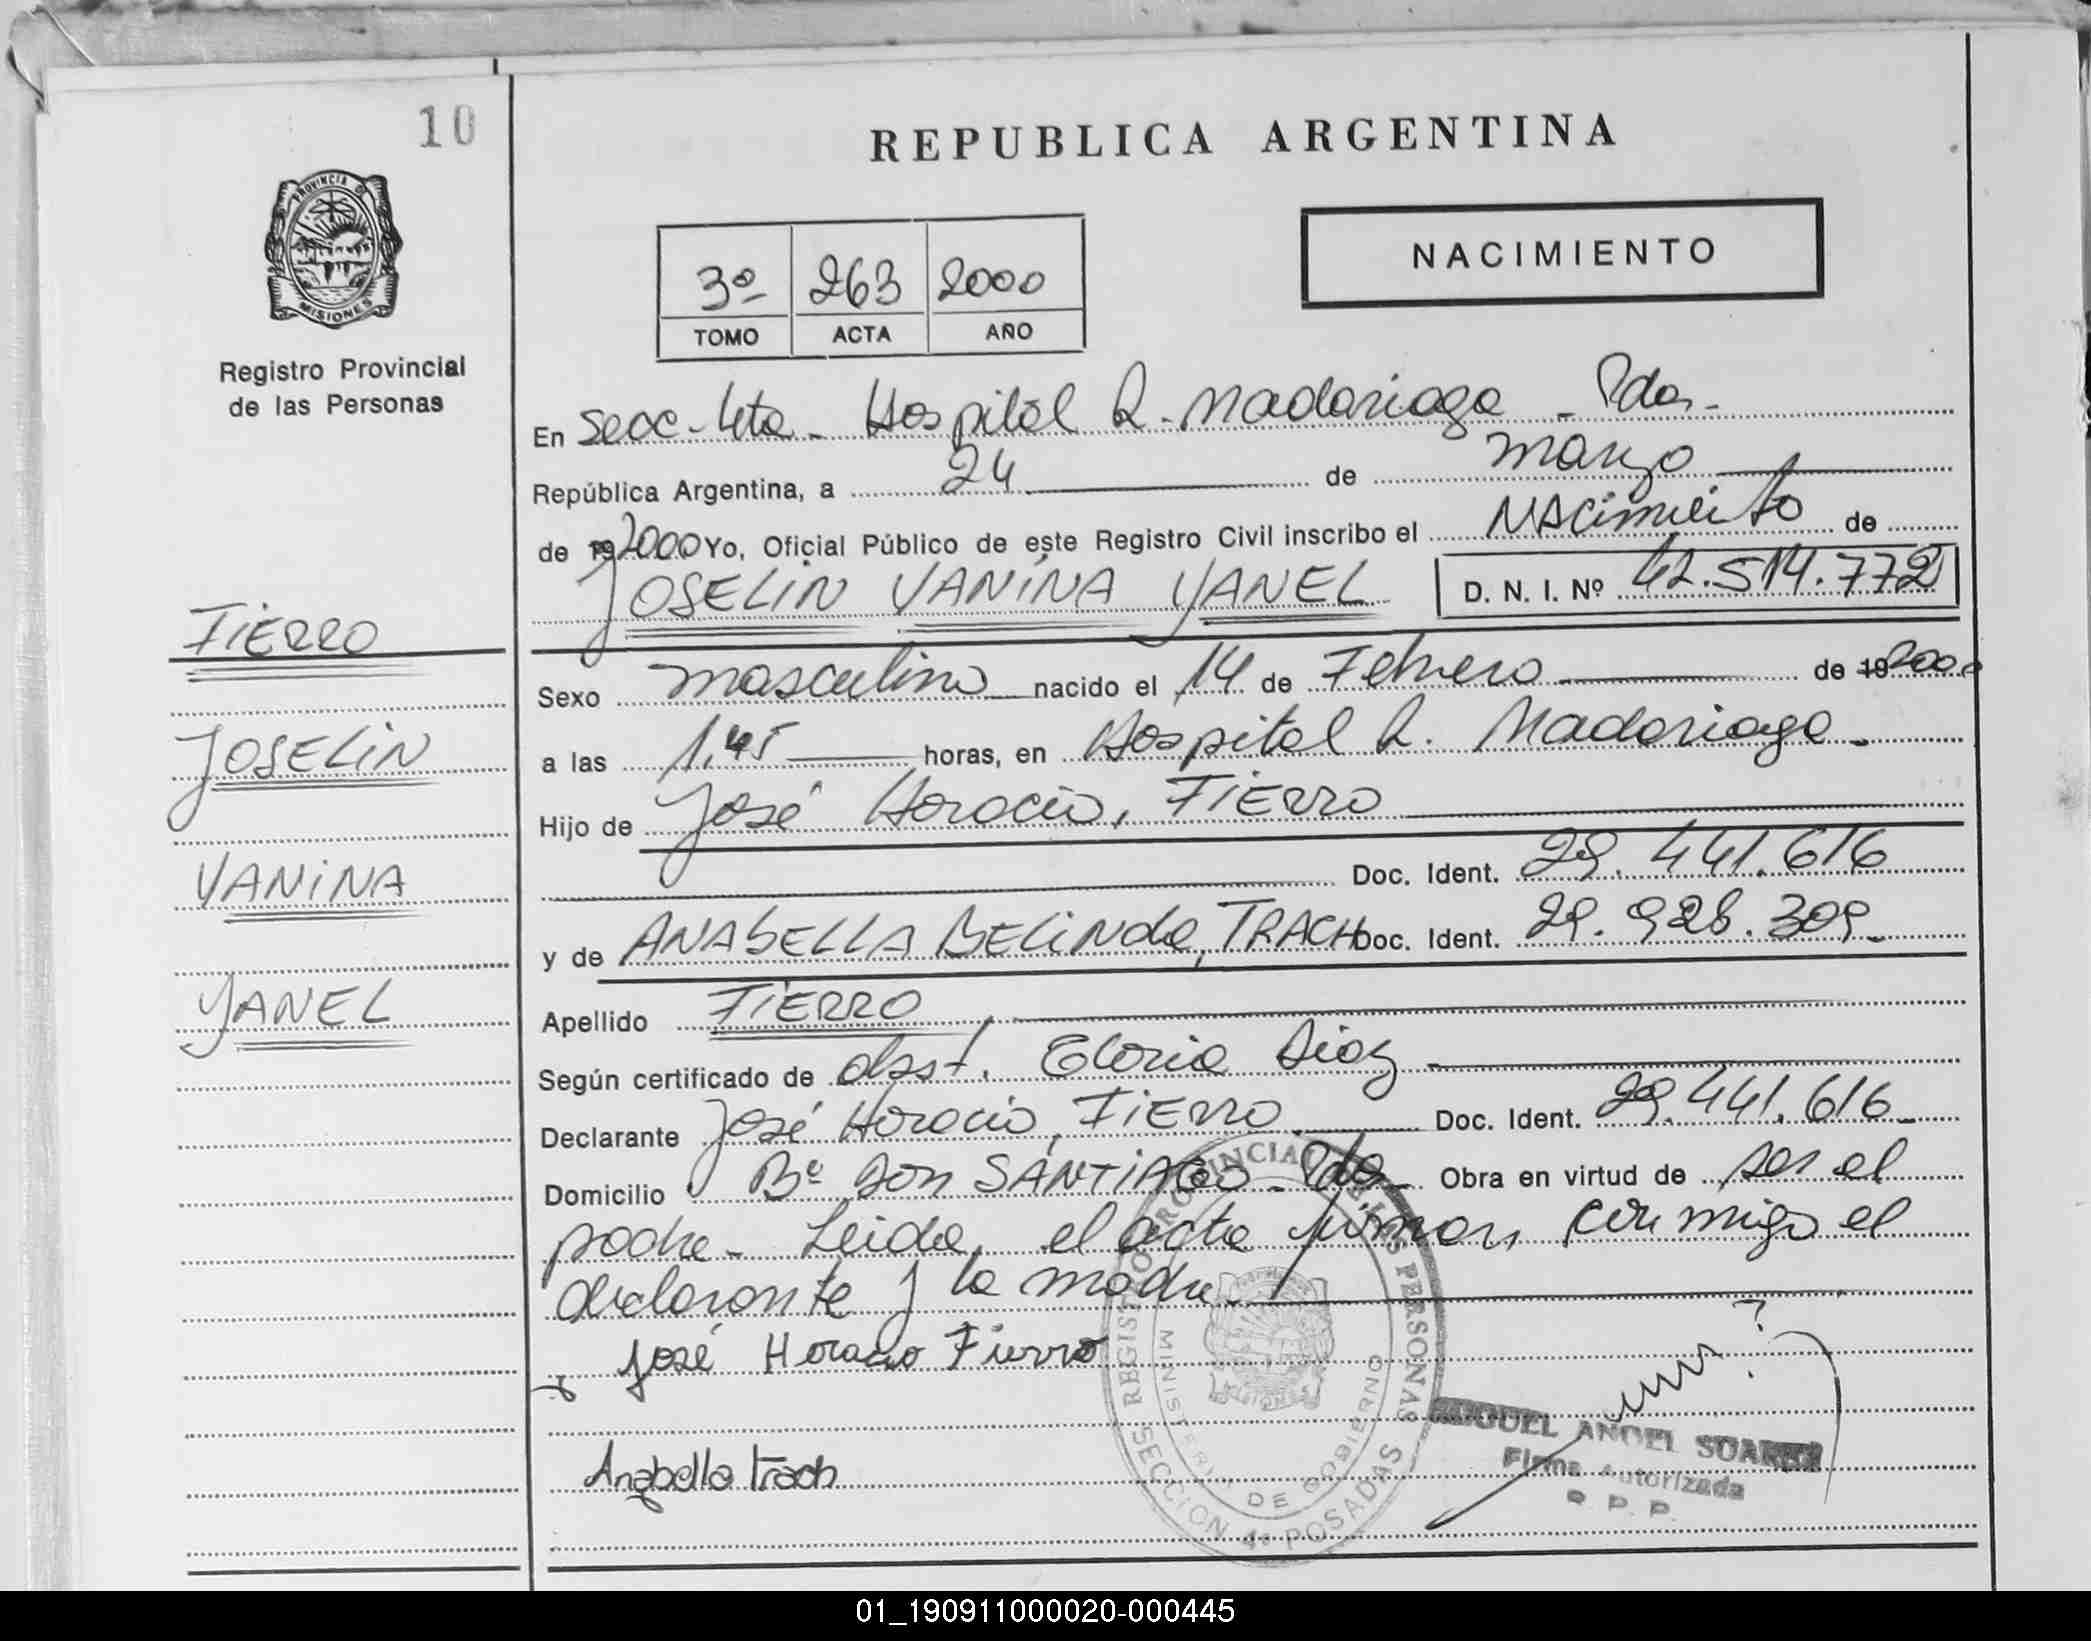 10
REPUBLICA ARGENTINA
PROVINCIA D MISIONES
3º 263 2000
TOMO ACTA AÑO
NACIMIENTO
Registro Provincial
de las Personas
En Secc. 4ta. Hospital R. Madariaga - Pdas.
República Argentina, a 24 de marzo
de 19 2000 Yo, Oficial Público de este Registro Civil inscribo el NAcimiento de
JOSELIN VANINA YANEL D. N. I. Nº 42.514.772
FIERRO
JOSELIN
VANINA
YANEL
Sexo masculino nacido el 14 de Febrero de 19 2000
a las 1,45 horas, en Hospital R. Madariaga.
Hijo de José Horacio, FIERRO
Doc. Ident. 29.441.616
y de ANABELLA BELINda, TRACH Doc. Ident. 29.928.309.
Apellido FIERRO
Según certificado de obst. Gloria Diaz
Declarante José Horacio, FIERRO Doc. Ident. 29.441.616
Domicilio Bº Don SANTIAGO - Pdas Obra en virtud de ser el
padre. Leida el acta firman conmigo el
declarante y la madre.
José Horacio Fierro
Anabella Trach
REGISTRO PROVINCIAL DE LAS PERSONAS
MINISTERIO DE GOBIERNO
SECCION 4º POSADAS
MIGUEL ANGEL SUAREZ
Firma Autorizada
R. P. P.
01_190911000020-000445